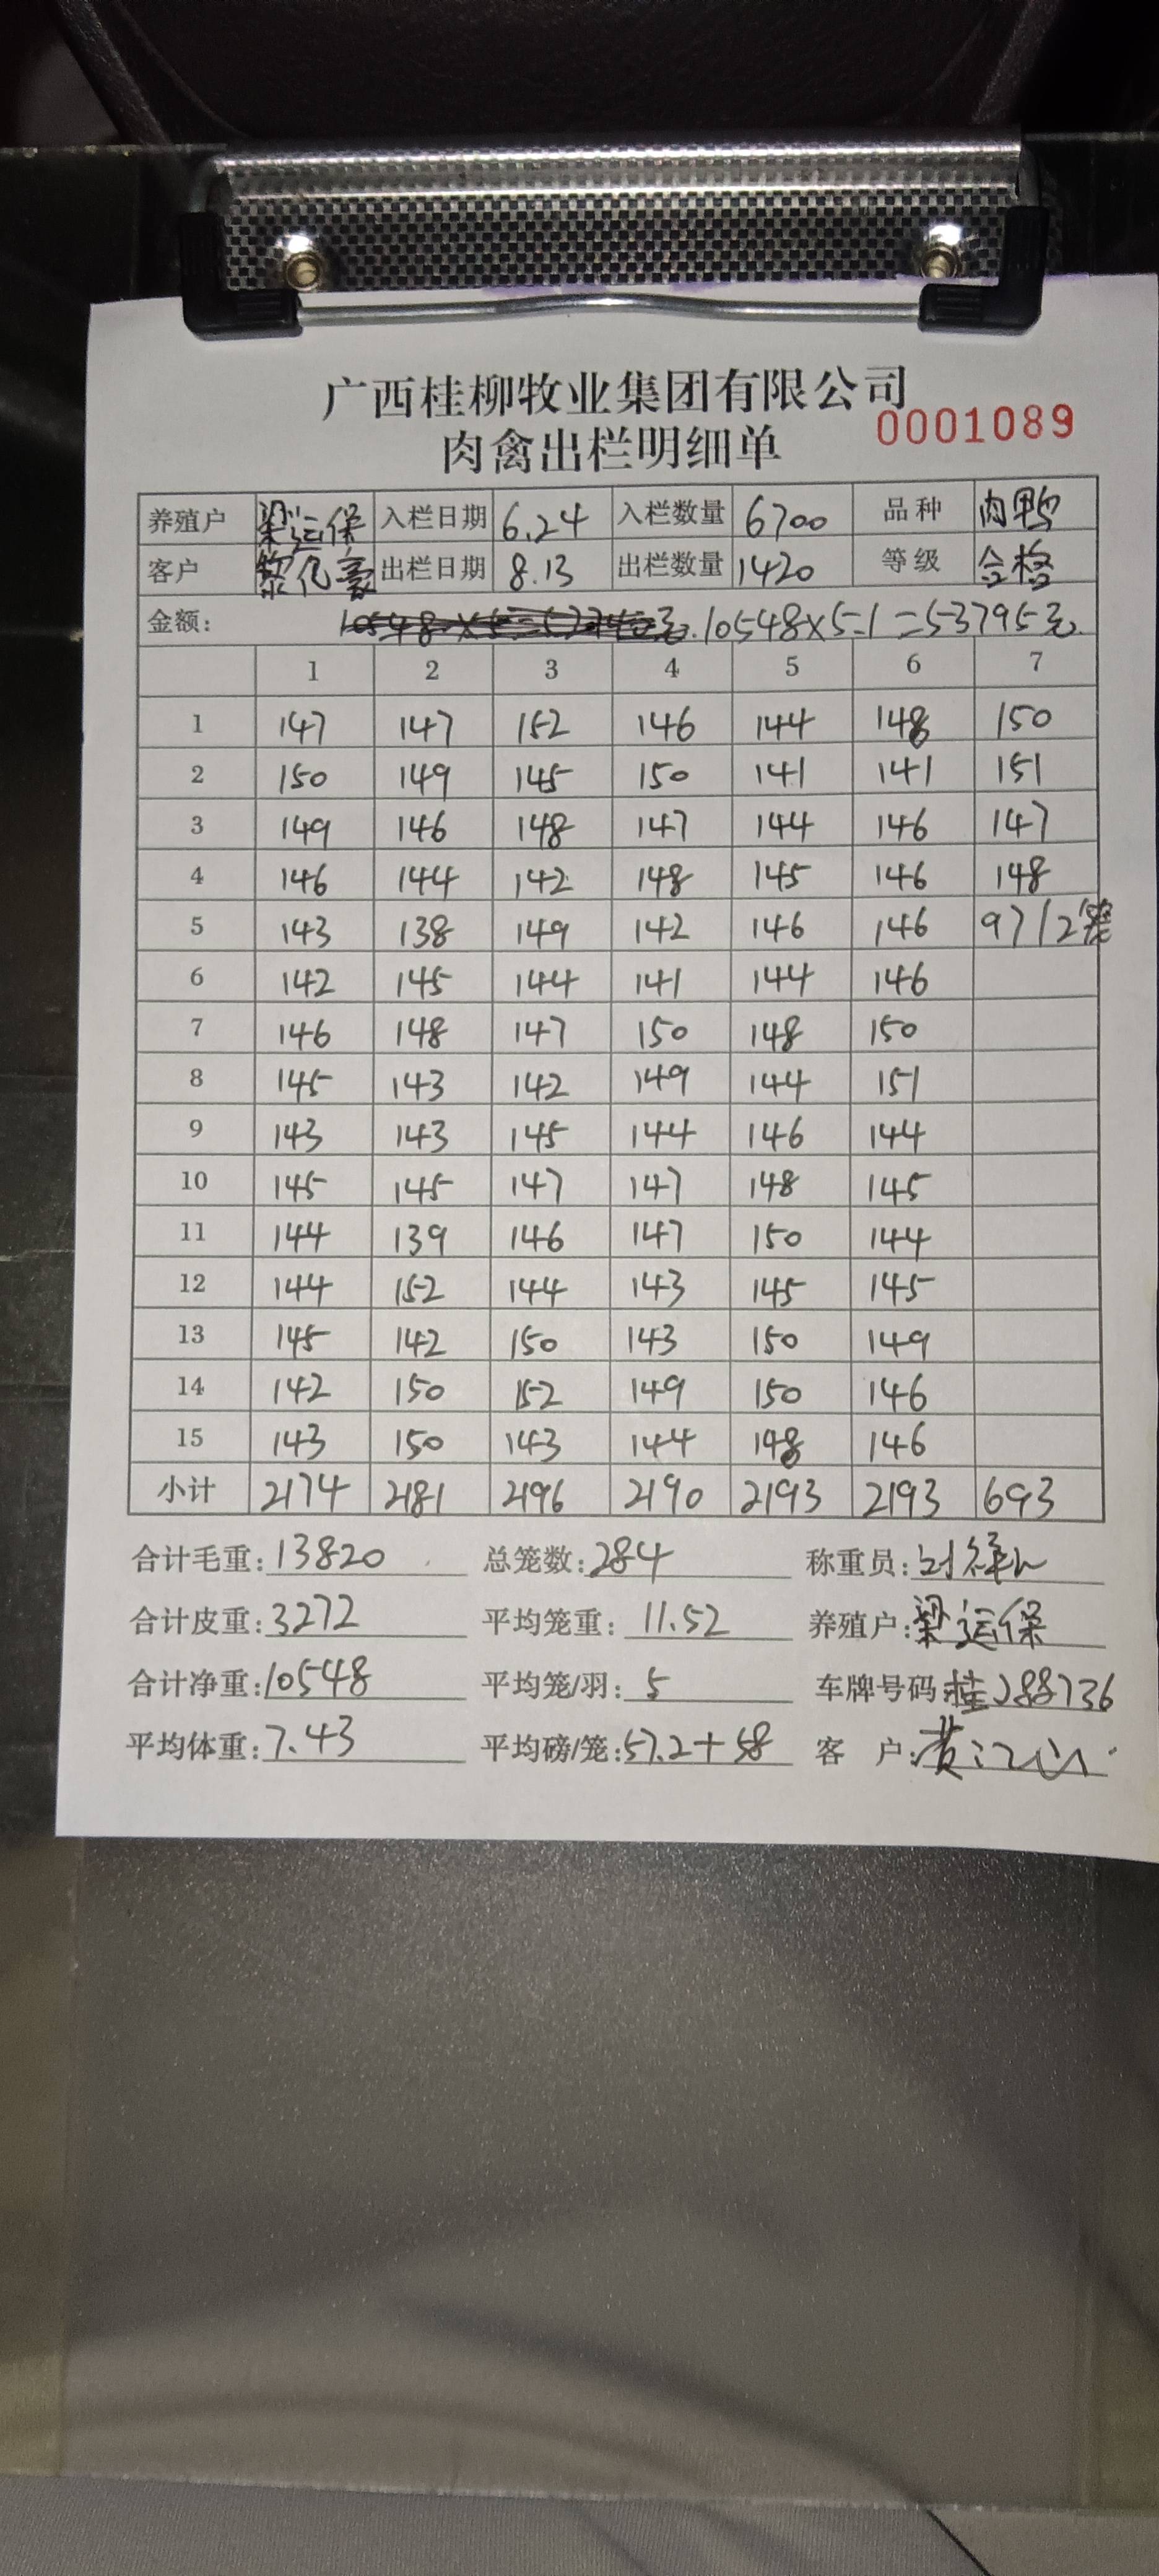 广西桂柳牧业集团有限公司
0001089
肉禽出栏明细单
养殖户 梁运保 入栏日期 6.24 入栏数量 6700 品种 肉鸭
客户 黎亿豪 出栏日期 8.13 出栏数量 1420 等级 合格
金额: 10548×5.1=53795元
1 2 3 4 5 6 7
1 147 147 152 146 144 148 150
2 150 149 145 150 141 141 151
3 149 146 148 147 144 146 147
4 146 144 142 148 145 146 148
5 143 138 149 142 146 146 97/2笼
6 142 145 144 141 144 146
7 146 148 147 150 148 150
8 145 143 142 149 144 151
9 143 143 145 144 146 144
10 145 145 147 147 148 145
11 144 139 146 147 150 144
12 144 152 144 143 145 145
13 145 142 150 143 150 149
14 142 150 152 149 150 146
15 143 150 143 144 148 146
小计 2174 2181 2196 2190 2193 2193 693
合计毛重: 13820 总笼数: 284 称重员:
合计皮重: 3272 平均笼重: 11.52 养殖户: 梁运保
合计净重: 10548 平均笼/羽: 5 车牌号码 桂J88736
平均体重: 7.43 平均磅/笼: 57.2+58 客 户: 黄江山